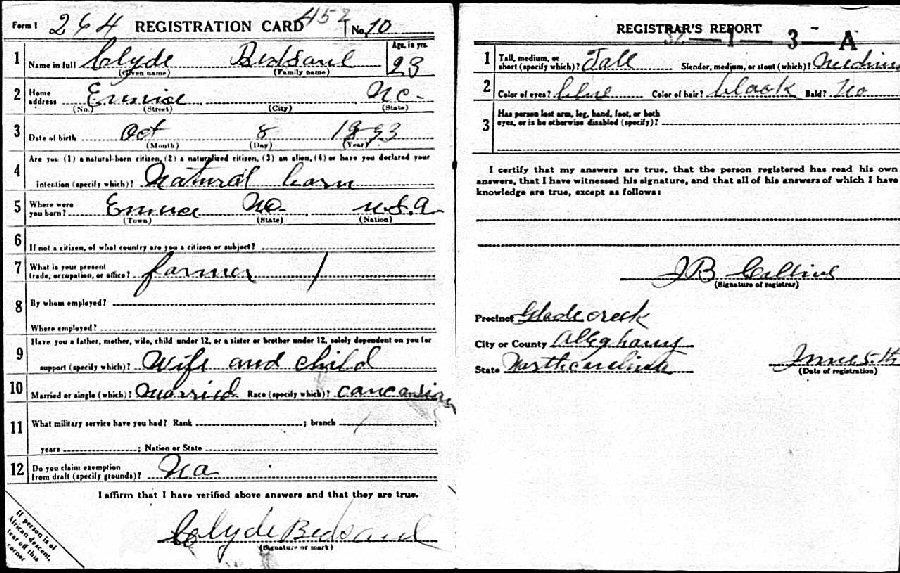 Form 1 264 REGISTRATION CARD 452 No. 10
1 Name in full Clyde Bedsaul Age, in yrs. 23
(Given name) (Family name)
2 Home address Ennice Nc.
(No.) (Street) (City) (State)
3 Date of birth Oct 8 1893
(Month) (Day) (Year)
Are you (1) a natural-born citizen, (2) a naturalized citizen, (3) an alien, (4) or have you declared your
4 intention (specify which)? Natural born
5 Where were you born? Ennice Nc. U.S.A
(Town) (State) (Nation)
6 If not a citizen, of what country are you a citizen or subject?
7 What is your present trade, occupation, or office? farmer
8 By whom employed?
Where employed?
Have you a father, mother, wife, child under 12, or a sister or brother under 12, solely dependent on you for
9 support (specify which)? Wife and child
10 Married or single (which)? Married Race (specify which)? caucasian
11 What military service have you had? Rank ; branch
years ; Nation or State
12 Do you claim exemption from draft (specify grounds)? No
I affirm that I have verified above answers and that they are true.
Clyde Bedsaul
(Signature or mark)
If person is of
African descent,
tear off this
corner
REGISTRAR'S REPORT
3 - A
1 Tall, medium, or short (specify which)? Tall Slender, medium, or stout (which)? Medium
2 Color of eyes? blue Color of hair? black Bald? No
3 Has person lost arm, leg, hand, foot, or both eyes, or is he otherwise disabled (specify)?
I certify that my answers are true, that the person registered has read his own
answers, that I have witnessed his signature, and that all of his answers of which I have
knowledge are true, except as follows:
J B Collins
(Signature of registrar)
Precinct Glade creek
City or County Alleghany
State North carolina June 5th
(Date of registration)